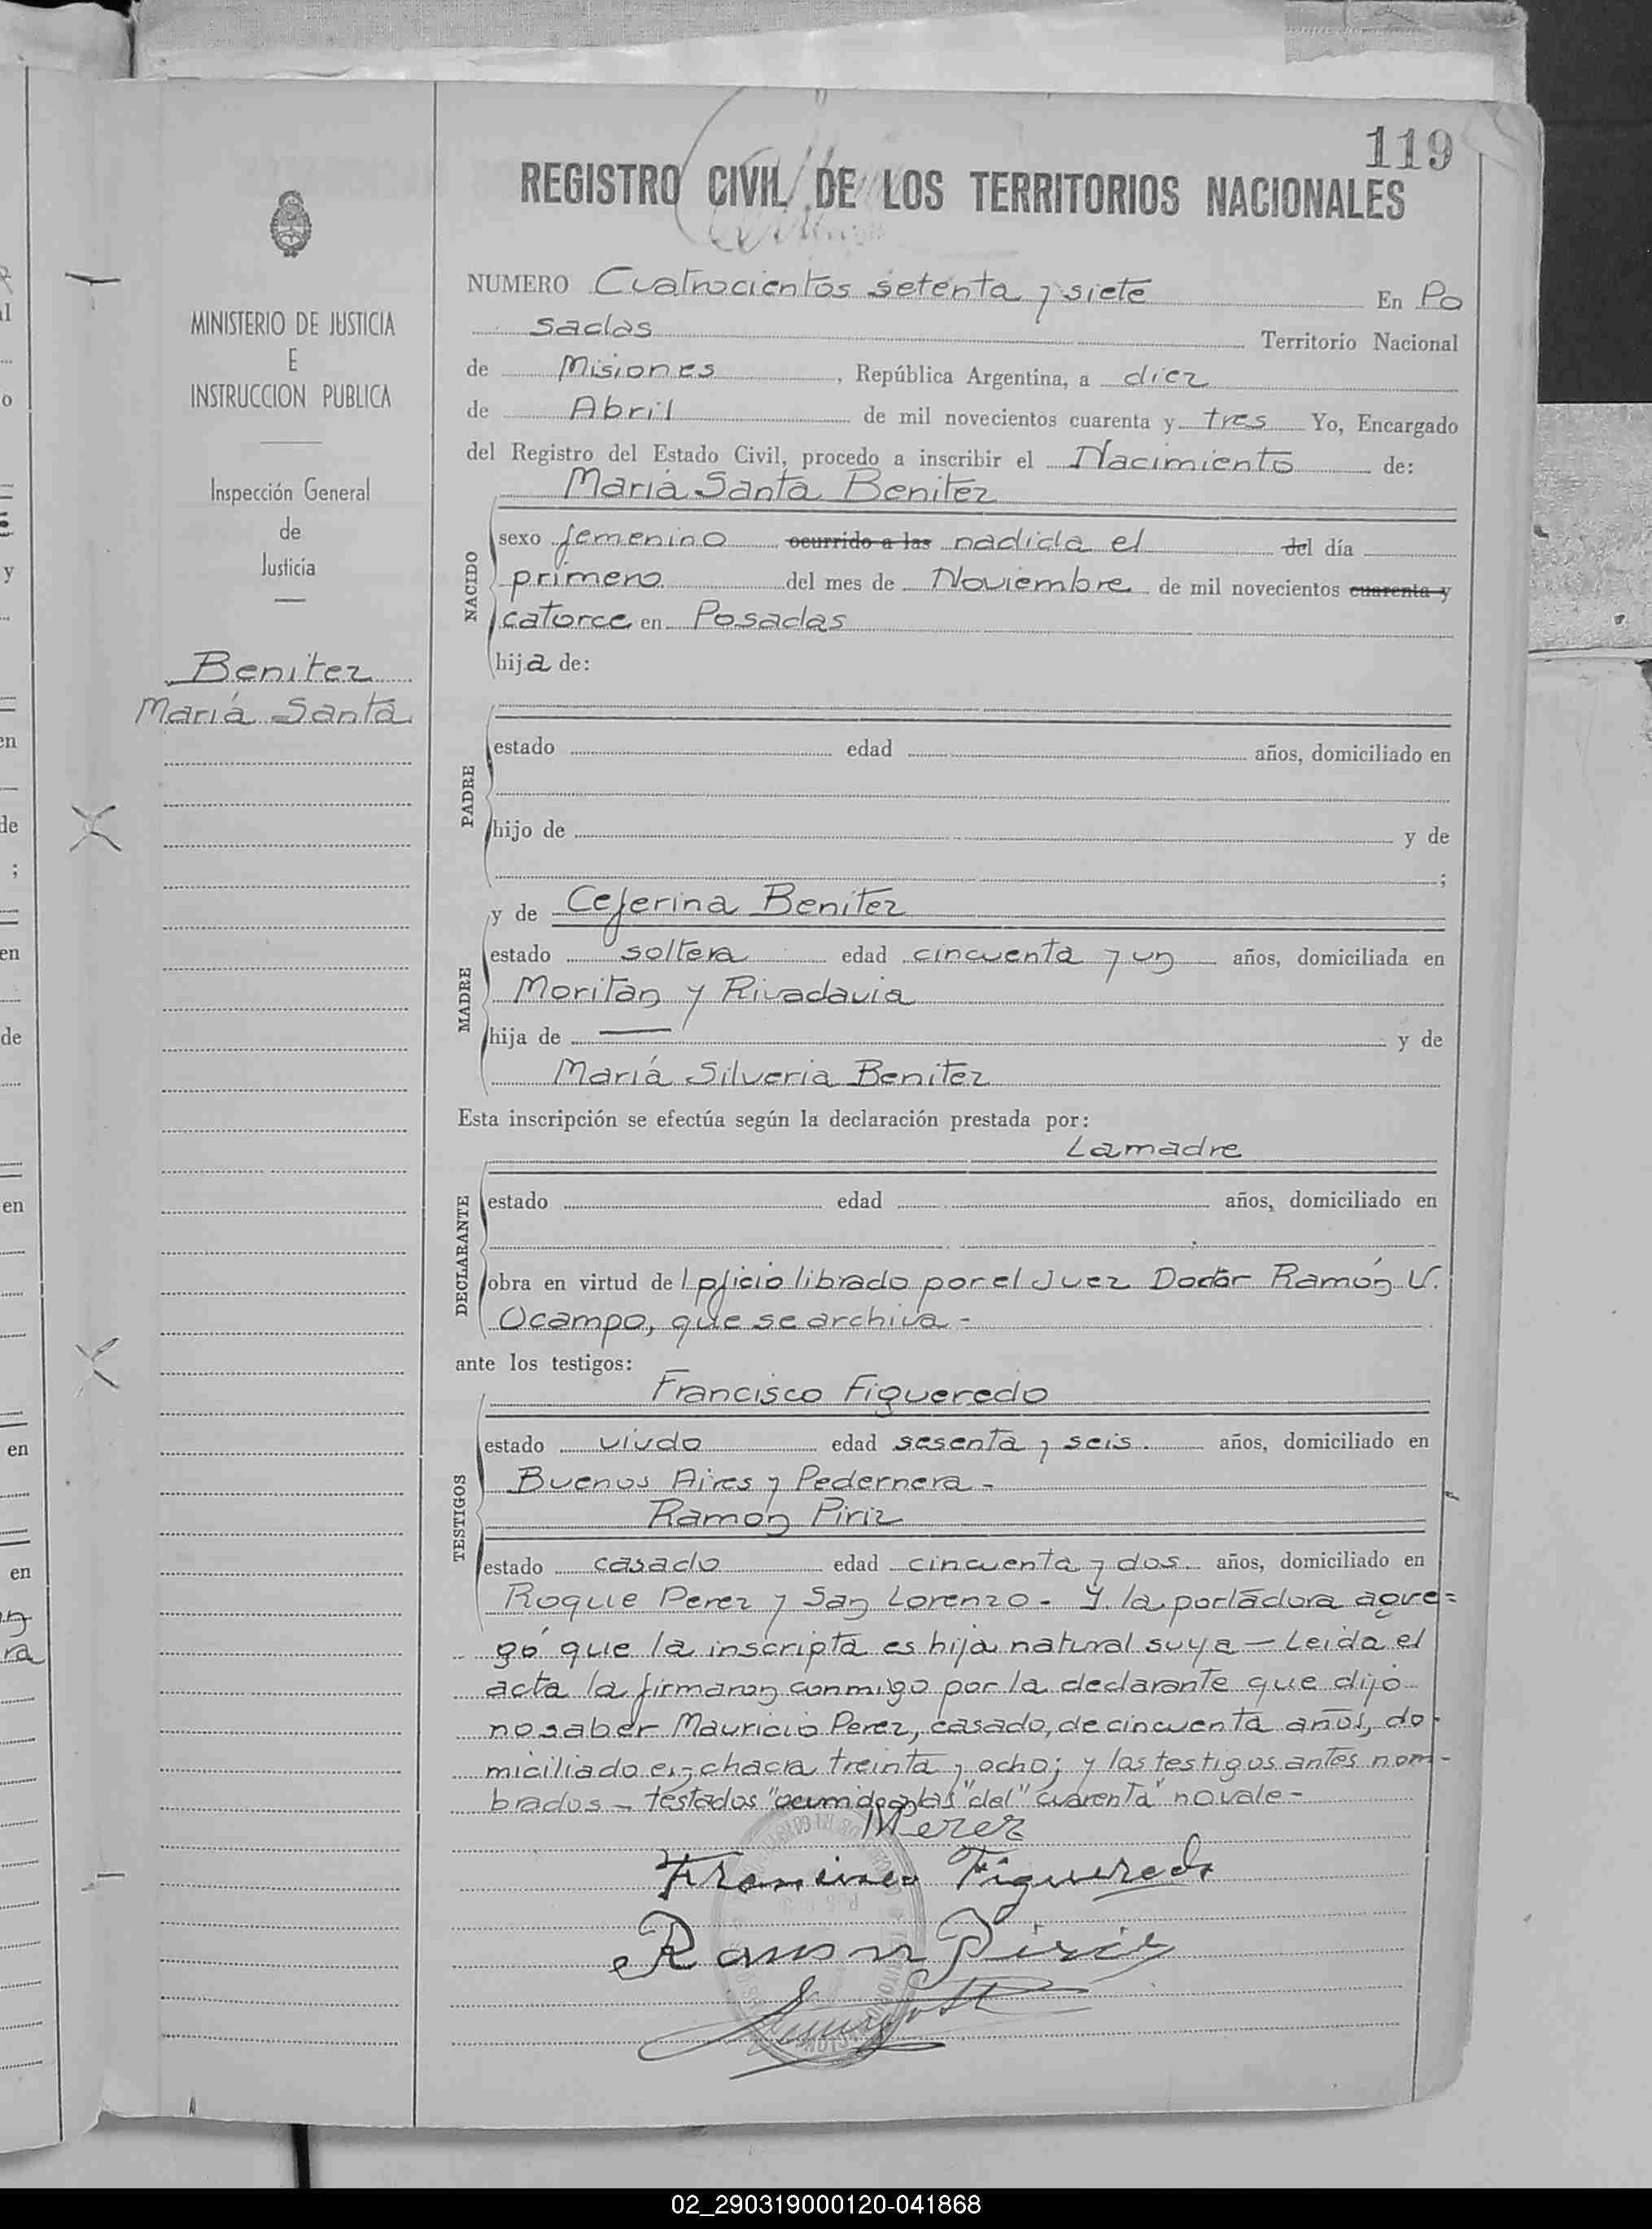 119
REGISTRO CIVIL DE LOS TERRITORIOS NACIONALES
MINISTERIO DE JUSTICIA
E
INSTRUCCION PUBLICA
Inspección General
de
Justicia
Benitez
María Santa
NUMERO Cuatrocientos setenta y siete En Po
sadas Territorio Nacional
de Misiones, República Argentina, a diez
de Abril de mil novecientos cuarenta y tres Yo, Encargado
del Registro del Estado Civil, procedo a inscribir el Nacimiento de:
María Santa Benitez
NACIDO
sexo femenino ocurrido a las nadida el del día
primero del mes de Noviembre de mil novecientos cuarenta y
catorce en Posadas
hija de:
PADRE
estado edad años, domiciliado en
hijo de y de
;
MADRE
y de Ceferina Benitez
estado soltera edad cincuenta y un años, domiciliada en
Moritan y Rivadavia
hija de — y de
María Silveria Benitez
Esta inscripción se efectúa según la declaración prestada por:
La madre
DECLARANTE
estado edad años, domiciliado en
obra en virtud de oficio librado por el Juez Doctor Ramón V.
Ocampo, que se archiva -
ante los testigos:
TESTIGOS
Francisco Figueredo
estado viudo edad sesenta y seis. años, domiciliado en
Buenos Aires y Pedernera -
Ramon Piriz
estado casado edad cincuenta y dos. años, domiciliado en
Roque Perez y San Lorenzo - Y la portadora agre=
gó que la inscripta es hija natural suya — Leida el
acta la firmaron conmigo por la declarante que dijo
no saber Mauricio Perez, casado, de cincuenta años, do-
miciliado en chacra treinta y ocho; y los testigos antes nom-
brados - testados "ocurrido a las" "del" "cuarenta" no vale -
MPerez
Francisco Figueredo
Ramon Piriz
02_290319000120-041868